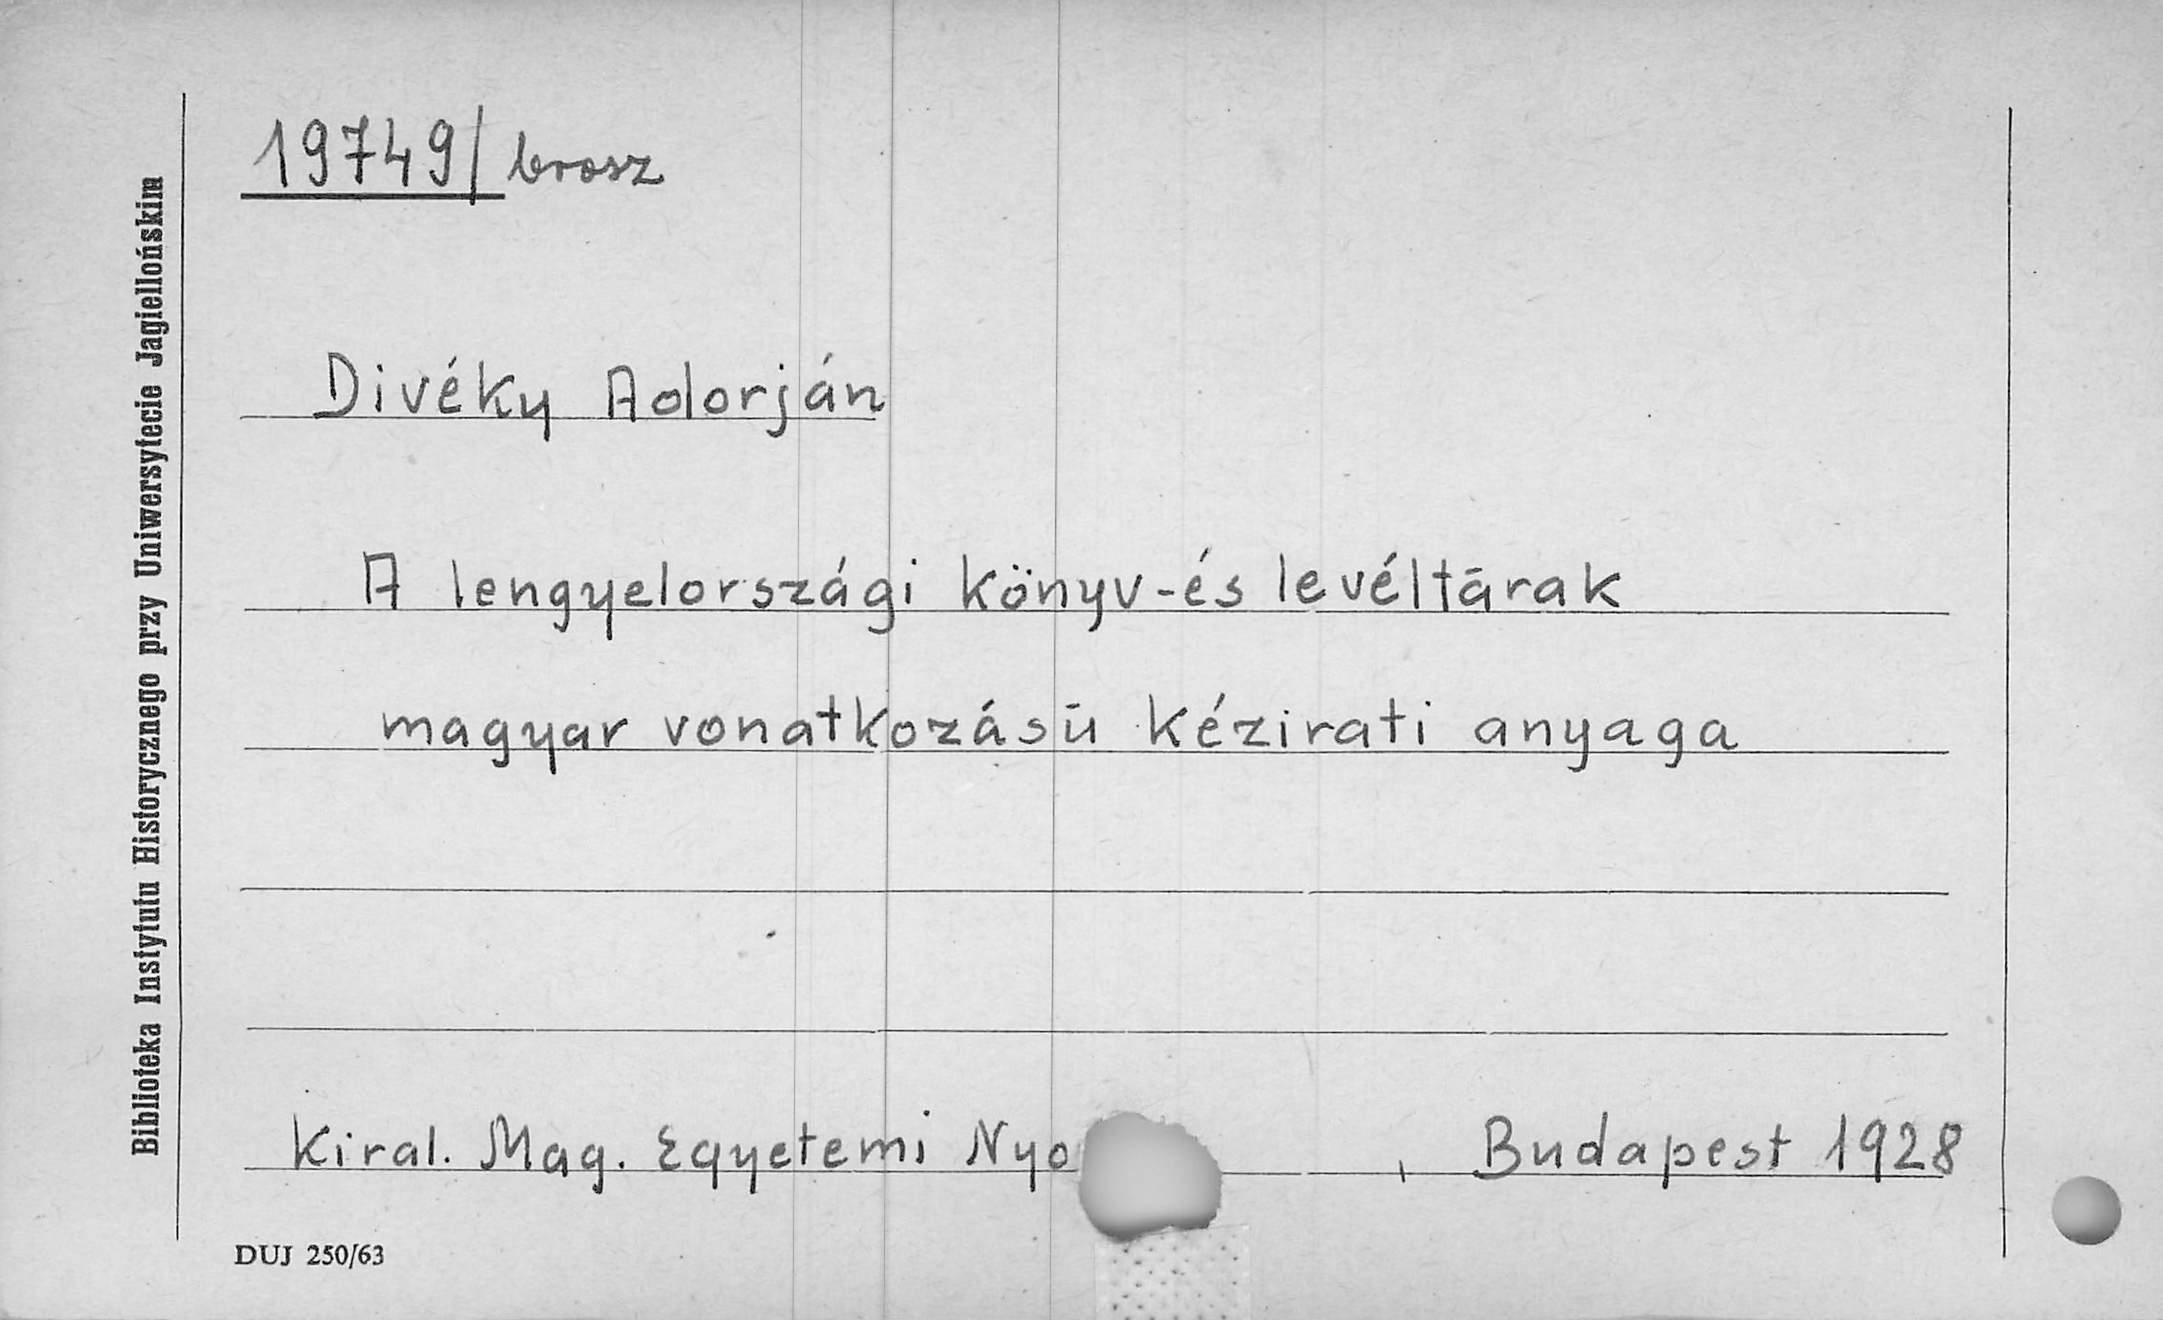 19749/brosz
Divéky Adorján
A lengyelországi könyv-és levéltārak
magyar vonatkozásū kézirati anyaga
Kiral. Mag. Egyetemi Nyo , Budapest 1928
DUJ 250/63
Biblioteka Instytutu Historycznego przy Uniwersytecie Jagiellońskim